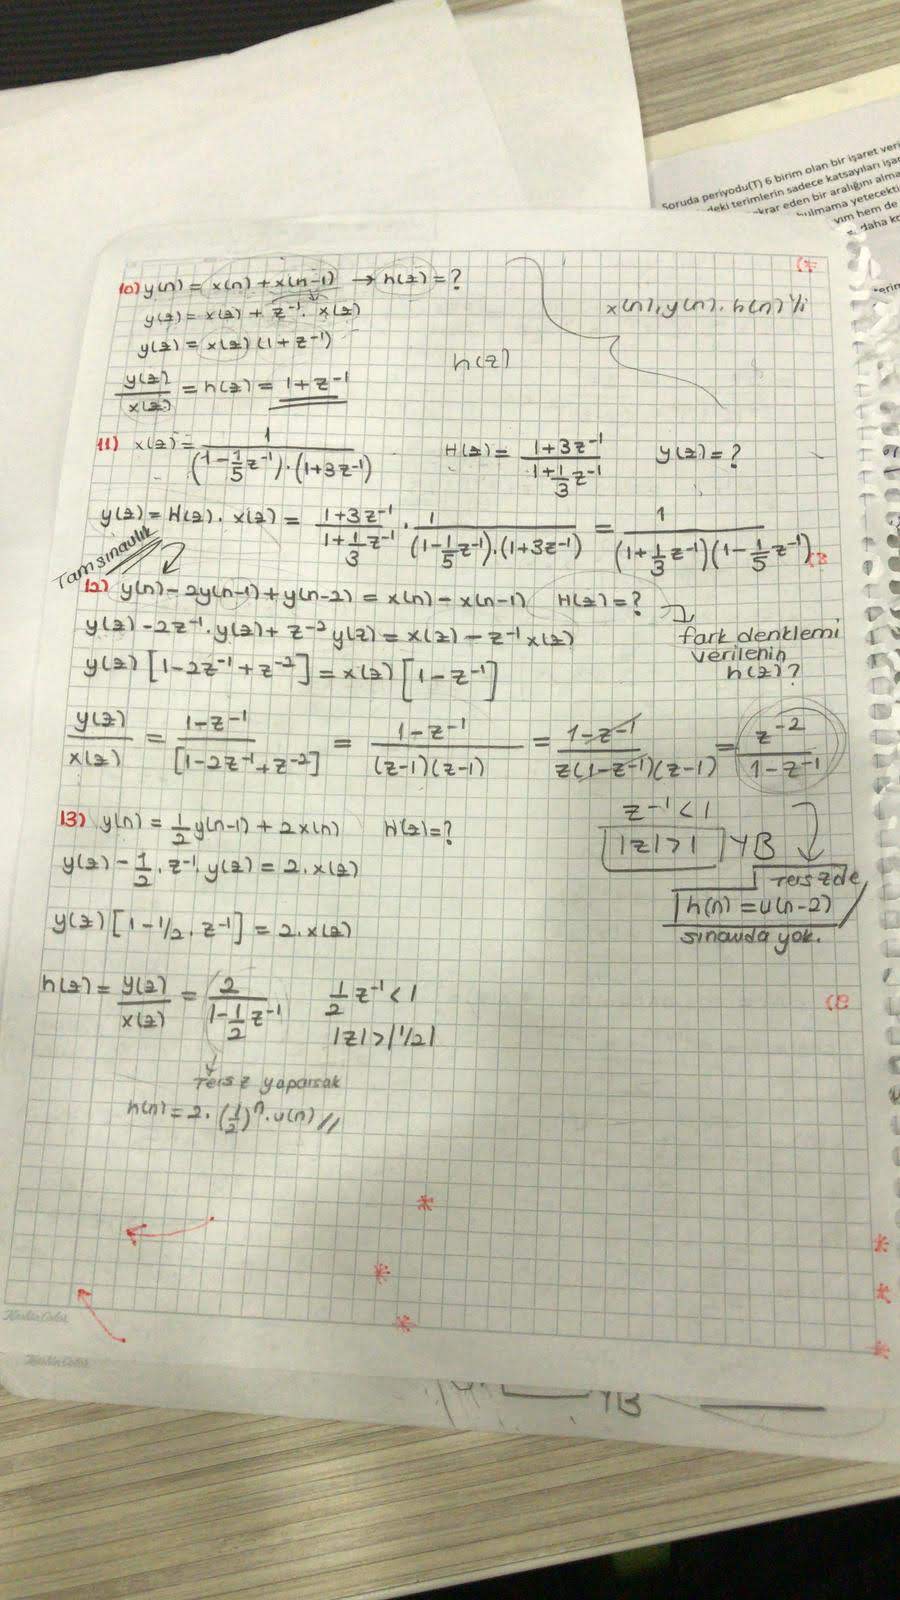 Soruda periyodu(T) 6 birim olan bir işaret veri
deki terimlerin sadece katsayıları işar
krar eden bir aralığını alma
bulmama yetecekti
yım hem de
daha ko
10) y(n) = x(n) + x(n-1) → h(z) = ?
y(z) = x(z) + z⁻¹. x(z)
y(z) = x(z) (1 + z⁻¹)
y(z)/x(z) = h(z) = 1 + z⁻¹
x(n), y(n), h(n)
h(z)
11) x(z) = 1/((1-1/5 z⁻¹).(1+3z⁻¹)) H(z) = (1+3z⁻¹)/(1+1/3 z⁻¹) y(z) = ?
y(z) = H(z). x(z) = (1+3z⁻¹)/(1+1/3 z⁻¹) . 1/((1-1/5 z⁻¹).(1+3z⁻¹)) = 1/((1+1/3 z⁻¹)(1-1/5 z⁻¹))
Tam sınavlık
12) y(n) - 2y(n-1) + y(n-2) = x(n) - x(n-1) H(z) = ?
y(z) - 2z⁻¹. y(z) + z⁻² y(z) = x(z) - z⁻¹ x(z)
fark denklemi
verilenin
h(z)?
y(z) [1-2z⁻¹ + z⁻²] = x(z) [1-z⁻¹]
y(z)/x(z) = (1-z⁻¹)/[1-2z⁻¹+z⁻²] = (1-z⁻¹)/((z-1)(z-1)) = (1-z⁻¹)/(z(1-z⁻¹)(z-1)) = z⁻²/(1-z⁻¹)
z⁻¹ < 1
|z| > 1 YB
Ters zde
h(n) = u(n-2)
sınavda yok.
13) y(n) = 1/2 y(n-1) + 2x(n) H(z) = ?
y(z) - 1/2 . z⁻¹. y(z) = 2. x(z)
y(z) [1-1/2. z⁻¹] = 2. x(z)
h(z) = y(z)/x(z) = 2/(1-1/2 z⁻¹) 1/2 z⁻¹ < 1
|z| > |1/2|
Ters z yaparsak
h(n) = 2. (1/2)ⁿ. u(n) //
YB